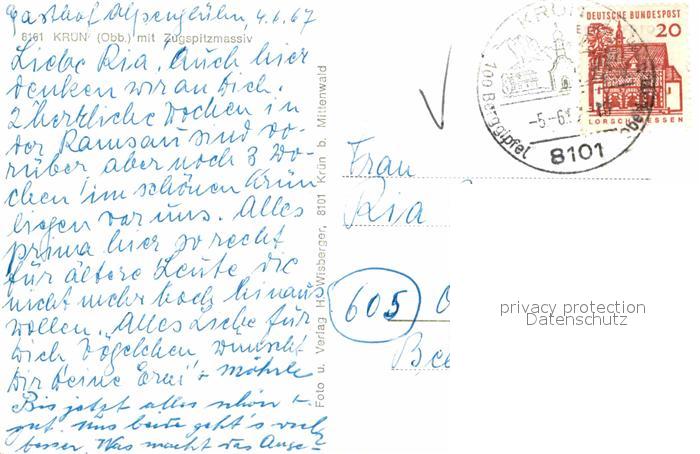 Gasthof Alpenglühn, 4.6.67
8101 KRÜN (Obb.) mit Zugspitzmassiv
Liebe Ria! Auch hier
denken wir an Dich.
2 herrliche Wochen in
der Ramsau sind vo-
rüber aber noch 3 Wo-
chen im schönen Krün
liegen vor uns. Alles
prima hier so recht
für ältere Leute die
nicht mehr hoch hinaus
wollen. Alles Liebe für
Dich Vögelchen wünscht
Dir Deine Erni + Möhrle
Bis jetzt alles schön +
gut. Uns beide geht's viel
besser. Was macht das Auge-
Foto u. Verlag H. Wisberger, 8101 Krün b. Mittenwald
KRÜN
100 Berggipfel
-5.-6.
8101
DEUTSCHE BUNDESPOST
20
LORSCH/HESSEN
Frau
Ria
605
privacy protection
Datenschutz